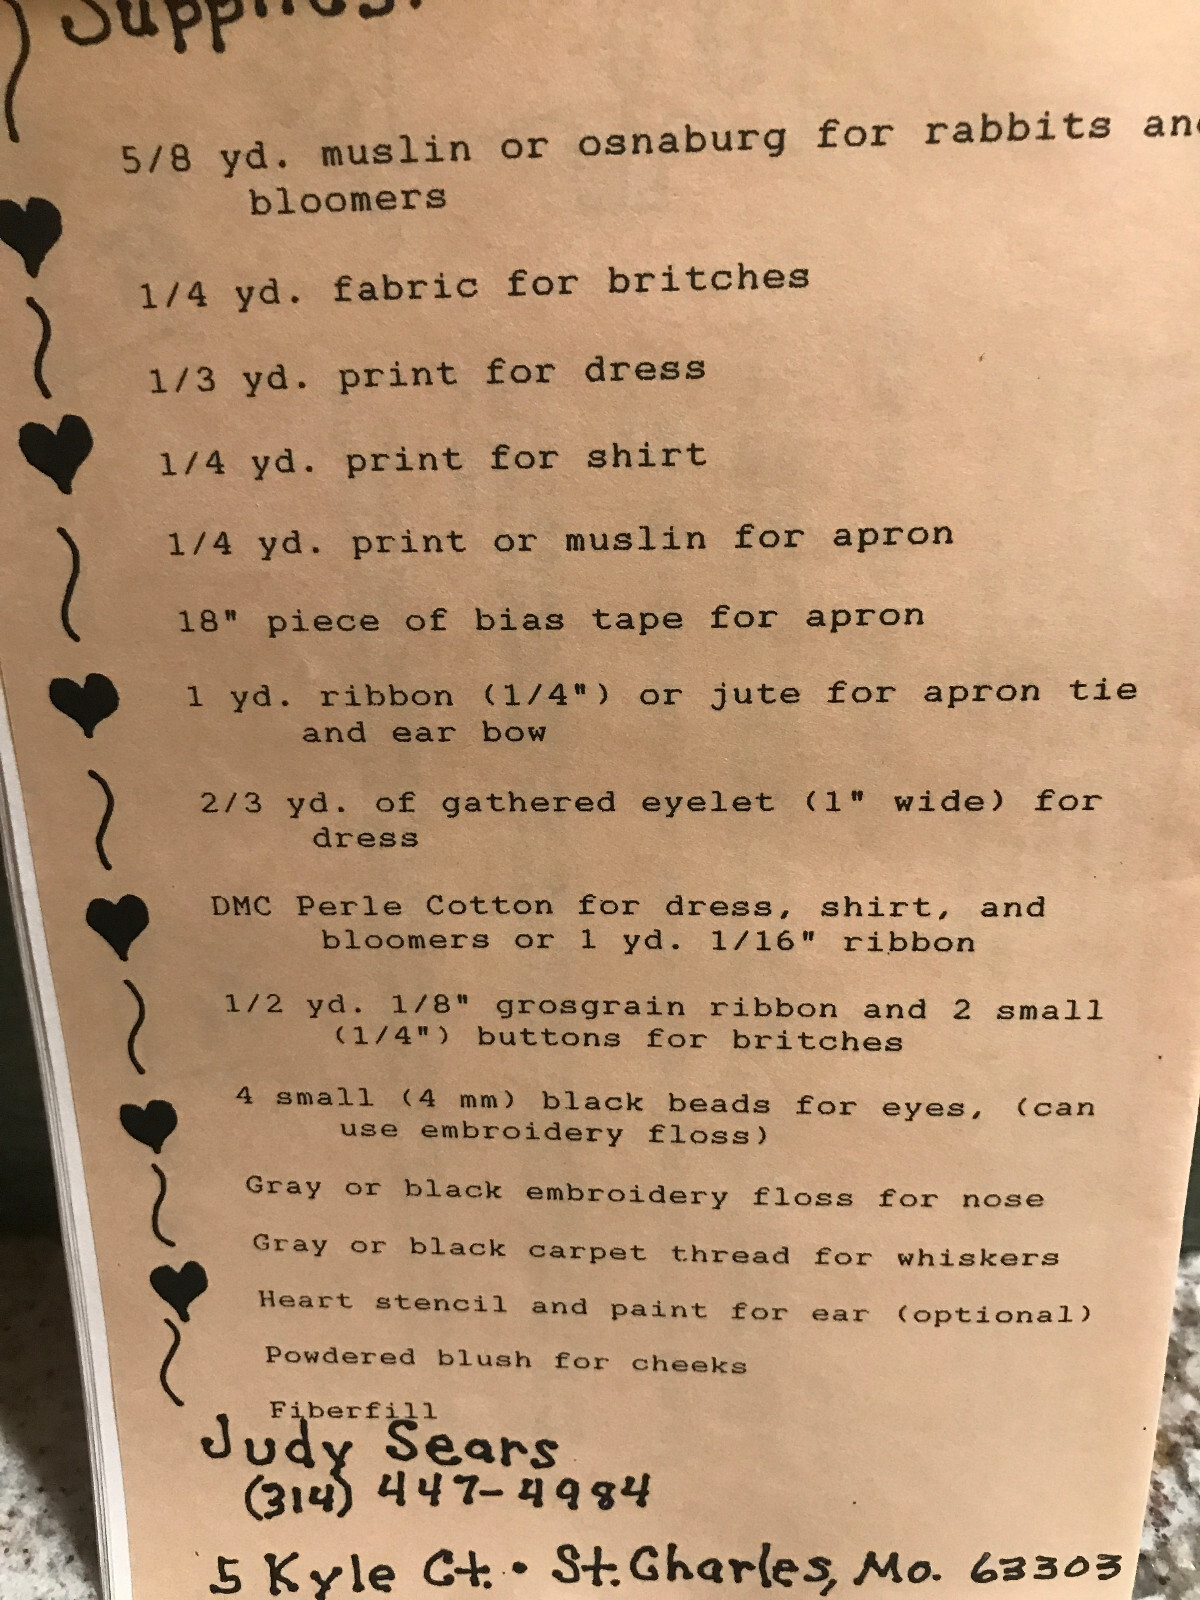 Supplies:
5/8 yd. muslin or osnaburg for rabbits and
bloomers
1/4 yd. fabric for britches
1/3 yd. print for dress
1/4 yd. print for shirt
1/4 yd. print or muslin for apron
18" piece of bias tape for apron
1 yd. ribbon (1/4") or jute for apron tie
and ear bow
2/3 yd. of gathered eyelet (1" wide) for
dress
DMC Perle Cotton for dress, shirt, and
bloomers or 1 yd. 1/16" ribbon
1/2 yd. 1/8" grosgrain ribbon and 2 small
(1/4") buttons for britches
4 small (4 mm) black beads for eyes, (can
use embroidery floss)
Gray or black embroidery floss for nose
Gray or black carpet thread for whiskers
Heart stencil and paint for ear (optional)
Powdered blush for cheeks
Fiberfill
Judy Sears
(314) 447-4984
5 Kyle Ct. • St. Charles, Mo. 63303